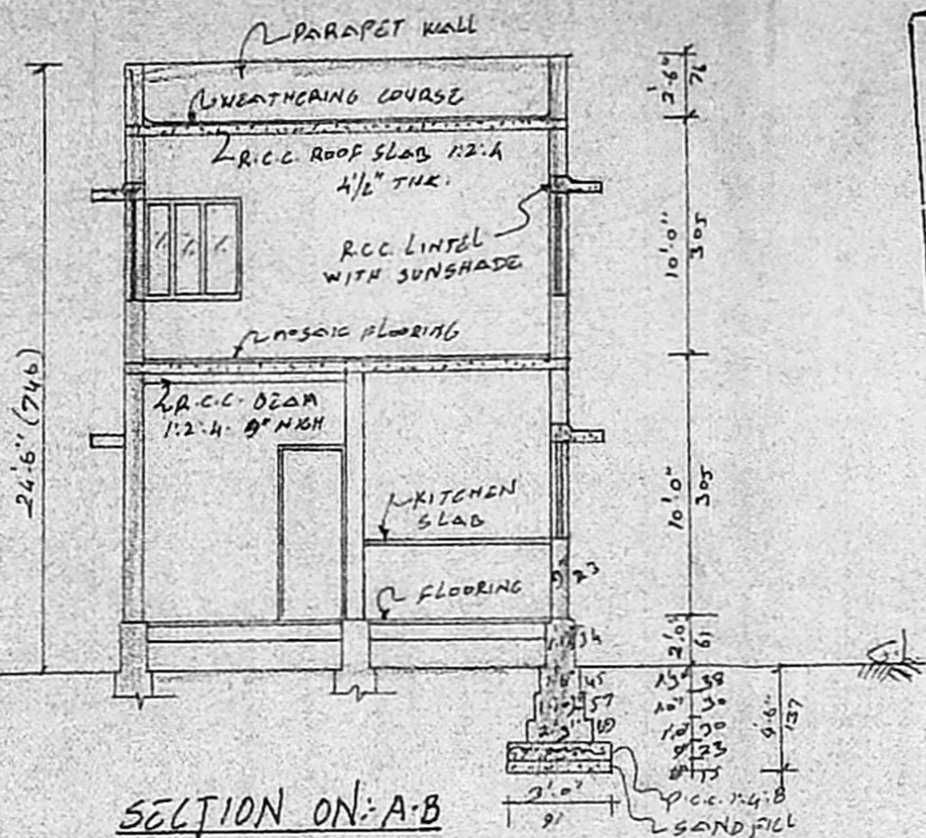 PARAPET WALL
WEATHERING COURSE
R.C.C. ROOF SLAB 1:2:4
4½" THK.
R.C.C. LINTEL
WITH SUNSHADE
MOSAIC FLOORING
R.C.C. BEAM
1:2:4 9" HIGH
KITCHEN
SLAB
FLOORING
24'.6" (746)
2'.6"
76
10'.0"
305
10'.0"
305
9"
23
2'.0"
61
34
45
57
2'.3"
69
38
30
1'.0"
30
9"
23
15
137
3'.0"
91
P.C.C. 1:4:8
SAND FILL
SECTION ON:-A-B